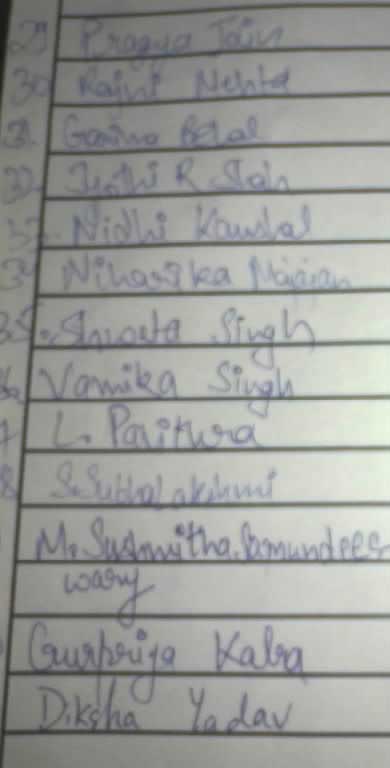 29 Pragya Jain
30 Rajni Mehta
31. Garima Belal
32. Jyothi R Shah
33. Nidhi Kaushal
34 Niharika Mahajan
35. Shweta Singh
Vamika Singh
7 L. Pavithra
8 S. Subbalakshmi
M. Sushmitha Samundees
wary
Gurpriya Kalra
Diksha Yadav